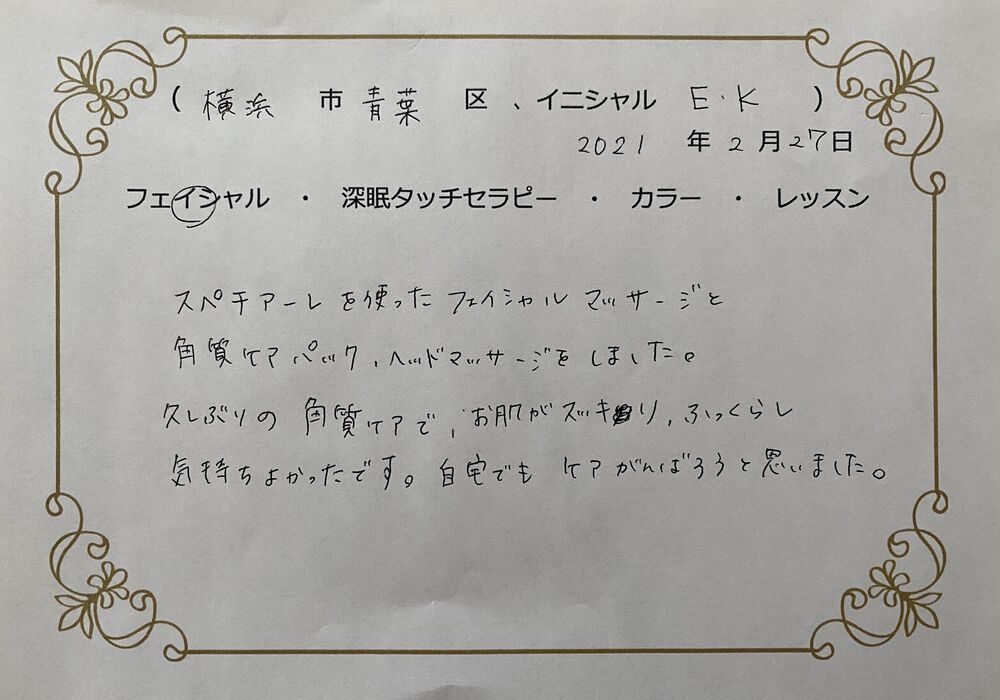 ( 横浜 市 青葉 区 、イニシャル E・K )
2021 年 2 月 27日
フェイシャル ・ 深眠タッチセラピー ・ カラー ・ レッスン
スペチアーレを使ったフェイシャルマッサージと
角質ケアパック、ヘッドマッサージをしました。
久しぶりの角質ケアで、お肌がスッキリ、ふっくらし
気持ちよかったです。自宅でもケアがんばろうと思いました。